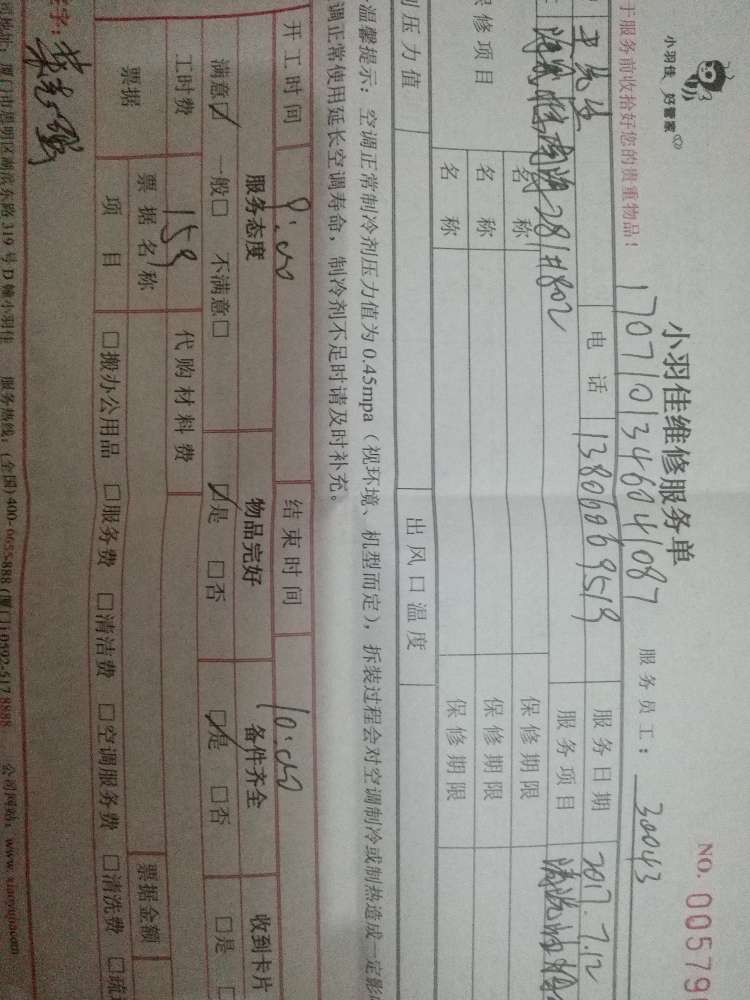 小羽佳 好管家
于服务前收拾好您的贵重物品！
小羽佳维修服务单
NO. 00579
1707101346041087
服务员工： 30043
先生
电话 13806069519
服务日期 2017.7.12
281#802
服务项目 清洗
保修项目
名称
保修期限
名称
保修期限
名称
保修期限
压力值
出风口温度
温馨提示：空调正常制冷剂压力值为0.45mpa（视环境、机型而定），拆装过程会对空调制冷或制热造成一定影
调正常使用延长空调寿命，制冷剂不足时请及时补充。
开工时间 9:00
结束时间 10:00
服务态度
物品完好
备件齐全
收到卡片
满意☑ 一般□ 不满意□
☑是 □否
☑是 □否
□是
工时费 159
代购材料费
票据
票据名称
票据金额
项目
□搬办公用品 □服务费 □清洁费 □空调服务费 □清洗费
字：
司地址：厦门市思明区湖滨东路319号D幢小羽佳 服务热线：(全国)400-0655-888 (厦门)0592-5178888 公司网站：www.xiaoyujia.com